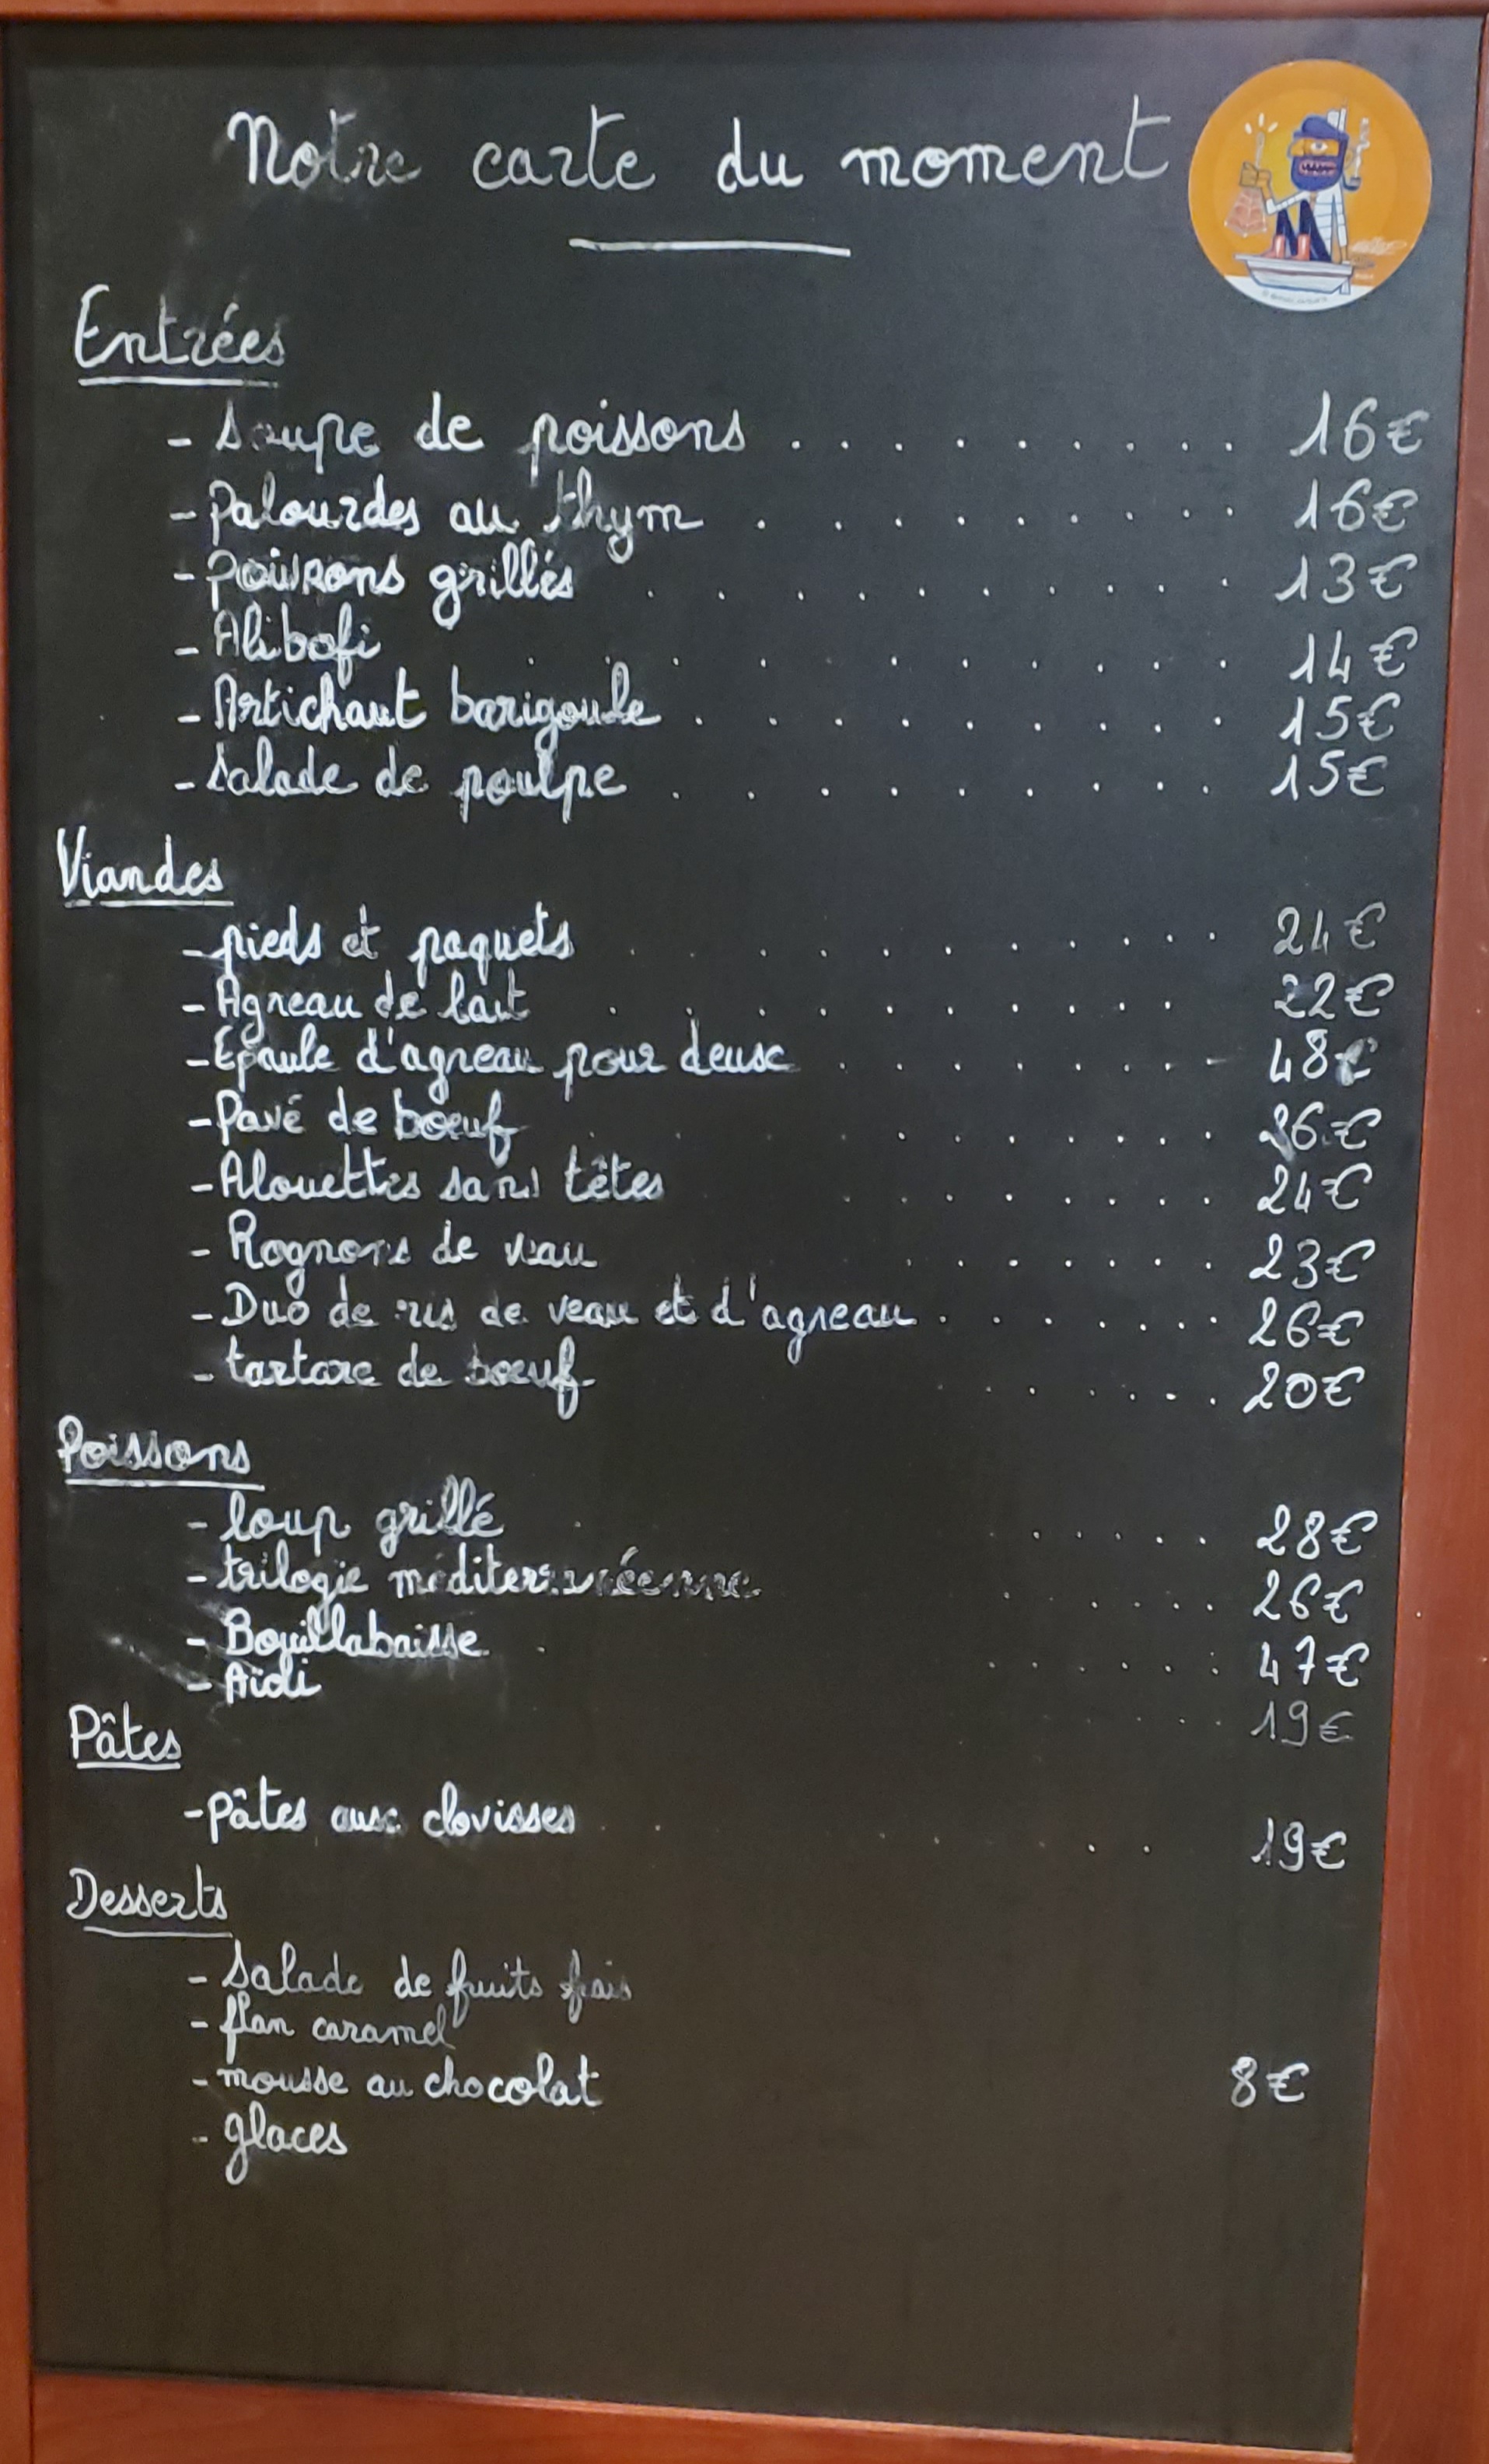 Notre carte du moment
Entrées
- Soupe de poissons . . . . . . . . . 16€
- Palourdes au thym . . . . . . . . . . 16€
- Poivrons grillés . . . . . . . . . . 13€
- Alibofi . . . . . . . . . . . 14€
- Artichaut barigoule . . . . . . . . . 15€
- Salade de poulpe . . . . . . . . . . 15€
Viandes
- pieds et paquets . . . . . . . . . . . 24€
- Agneau de lait . . . . . . . . . . 22€
- Epaule d'agneau pour deux . . . . . . . . 48€
- Pavé de bœuf . . . . . . . . . . . 26€
- Alouettes sans têtes . . . . . . . . 24€
- Rognons de veau . . . . . . . . 23€
- Duo de ris de veau et d'agneau . . . . . . . 26€
- tartare de bœuf . . . . . . . 20€
Poissons
- loup grillé . . . . . . 28€
- trilogie méditerranéenne . . . . . . 26€
- Bouillabaisse . . . . . . . 47€
- Aïoli . . . . . . . 19€
Pâtes
- pâtes aux clovisses . . . . . . . 19€
Desserts
- Salade de fruits frais
- flan caramel
- mousse au chocolat 8€
- glaces